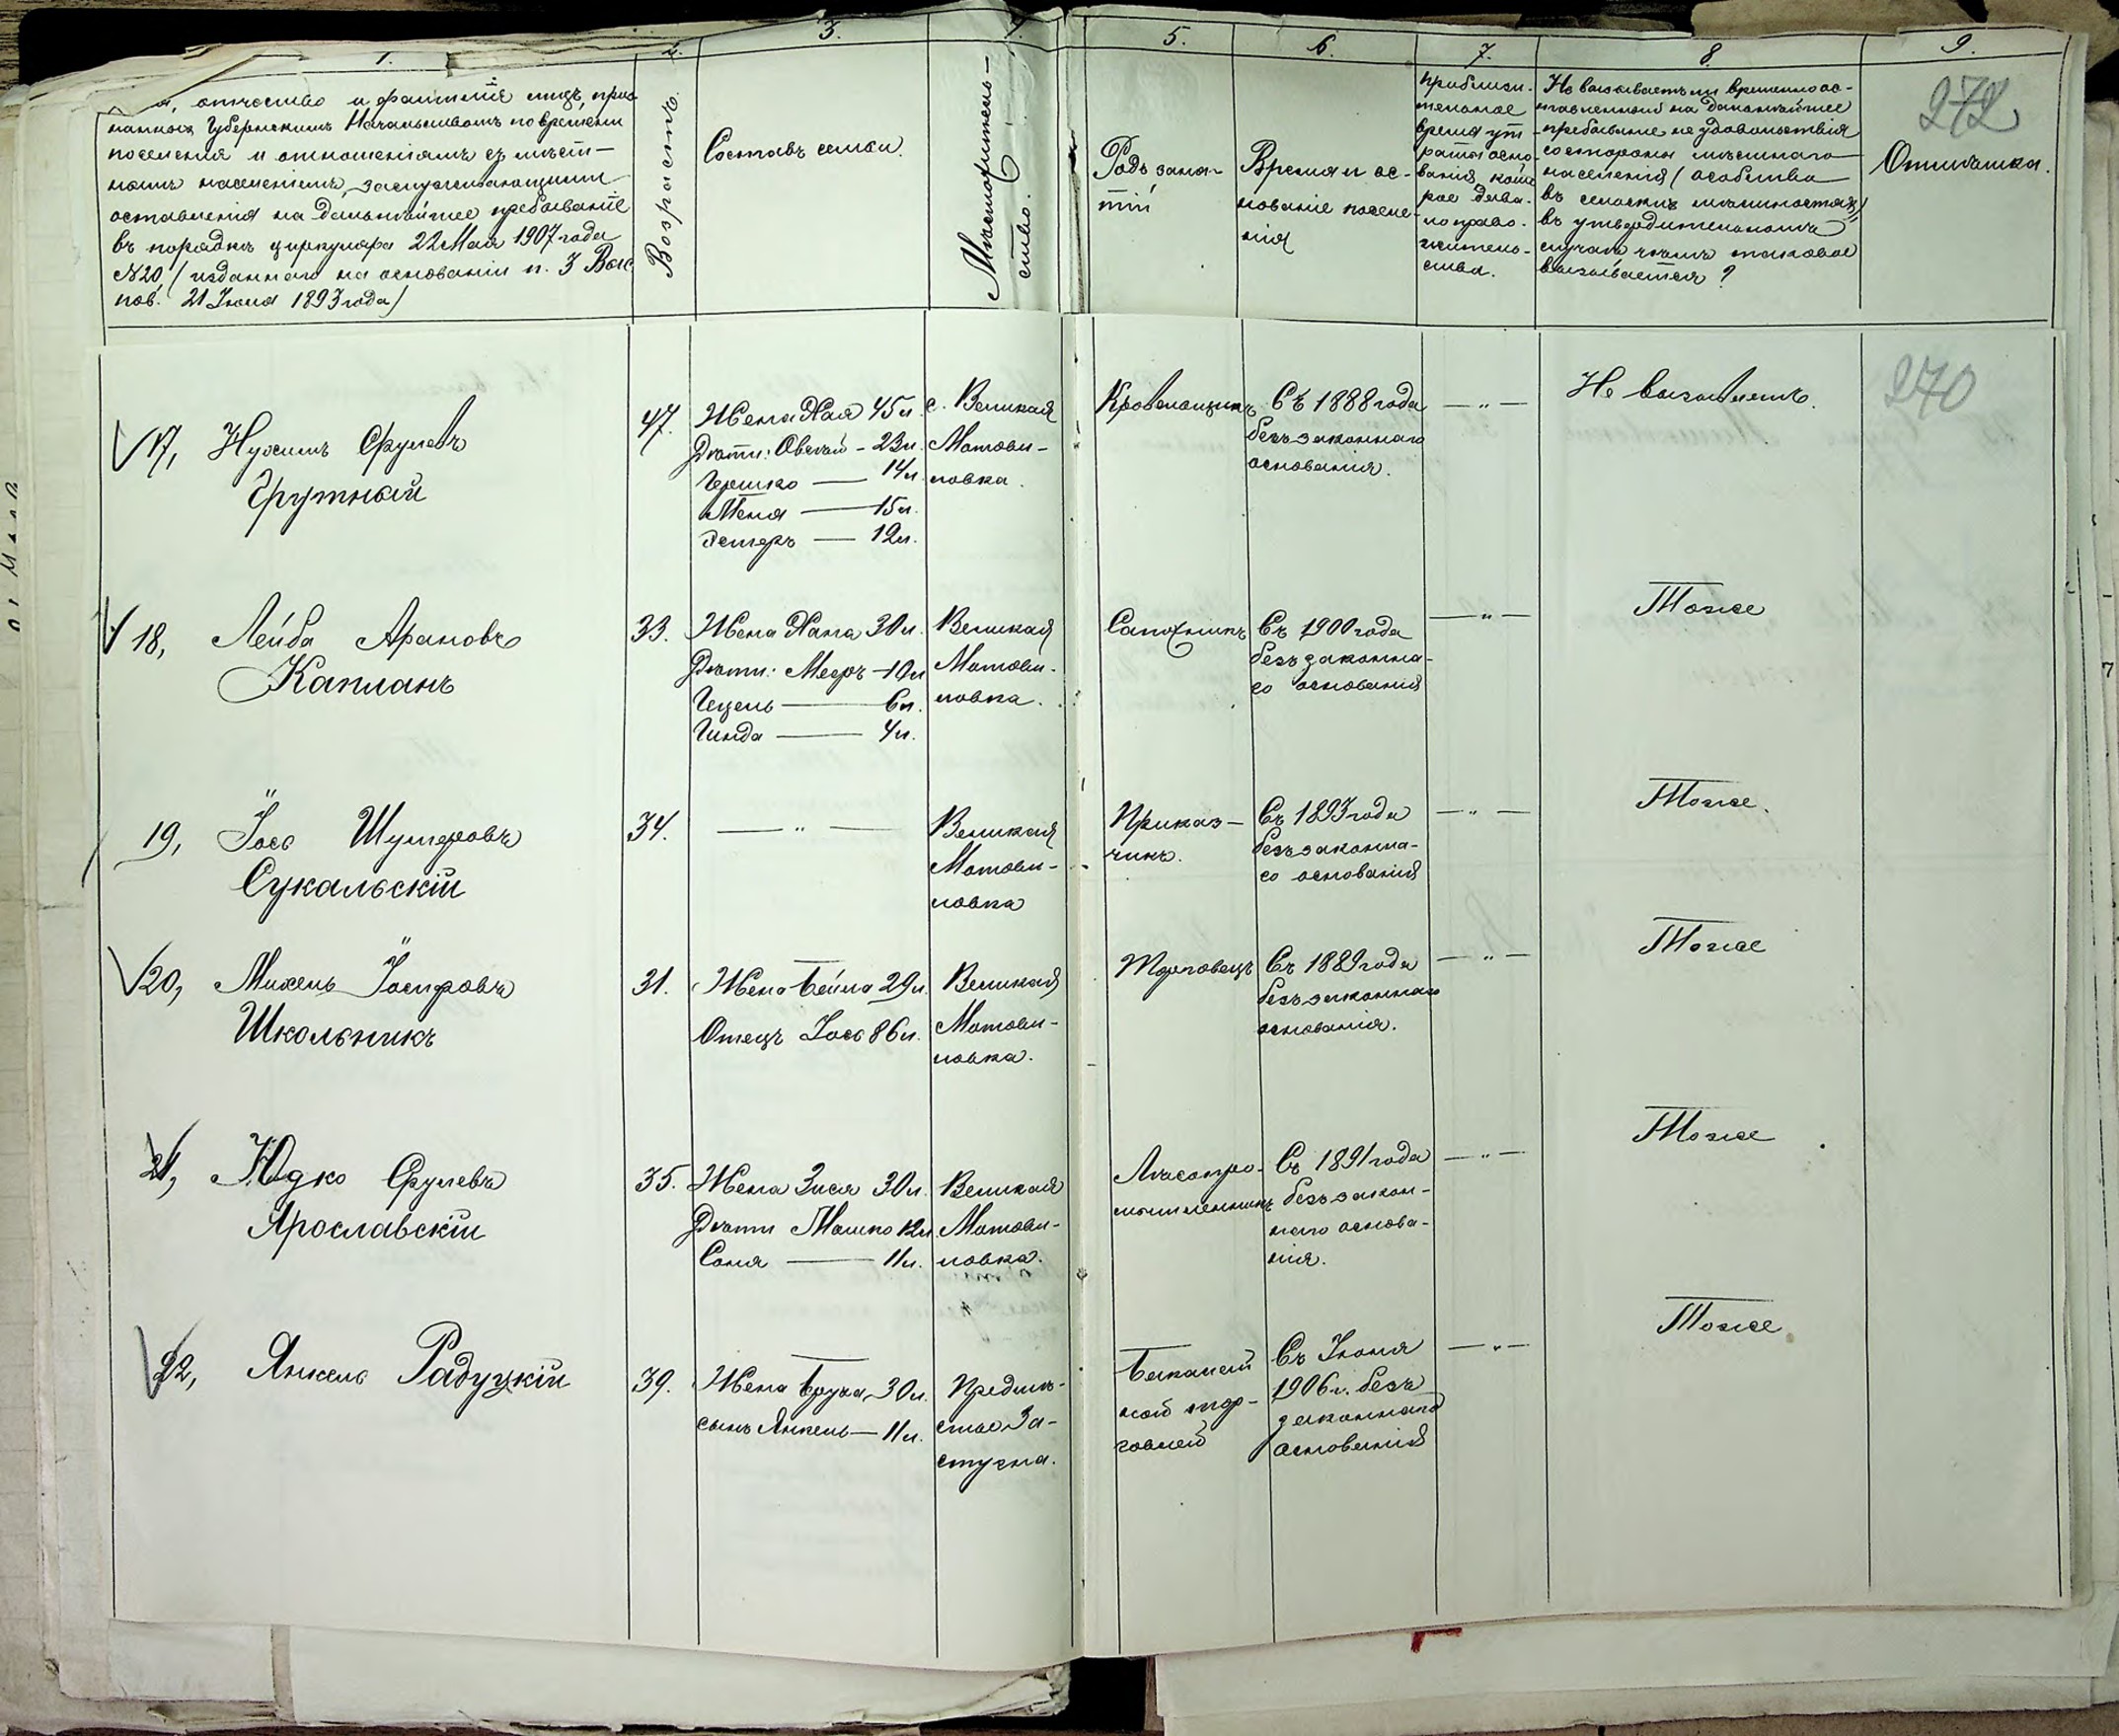 1. 2. 3. 4. 5. 6. 7. 8. 9.
отчество и фамилія лицъ, приз-
нанныхъ Губернскимъ Начальствомъ по времени
поселенія и отношеніямъ съ мѣст-
нымъ населеніемъ, заслуживающими
оставленія на дальнѣйшее пребываніе
въ порядкѣ циркуляра 22 Мая 1907 года
№20, (изданнаго на основаніи п. 3 Выс.
пов. 21 Іюня 1893 года)
Возрастъ.
Составъ семьи.
Мѣстожитель-
ство.
Родъ заня-
тій
Время и ос-
нованіе поселе-
нія
Приблизи-
тельное
время ут-
раты осно-
ванія, кото-
рое дава-
ло право-
житель-
ства.
Не вызываетъ ли временно ос-
тавленный на дальнѣйшее
пребываніе неудовольствія
со стороны мѣстнаго
населенія (особенно
въ сельскихъ мѣстностяхъ)
въ утвердительномъ
случаѣ чѣмъ таковое
вызывается?
272
Отмѣтка.
17, Нухимъ Срулевъ
Грутный
47.
Жена Хая 45 л.
Дѣти: Овсѣй - 23 л.
Гершко — 14 л.
Меня — 15 л.
Эстеръ — 12 л.
с. Великая
Мотови-
ловка.
Кровельщикъ
Съ 1888 года
безъ законнаго
основанія.
— „ —
Не вызываетъ.
270
18, Лейба Ароновъ
Капланъ
33.
Жена Хана 30 л.
Дѣти: Мееръ - 10 л
Гецель — 6 л.
Гинда — 4 л.
Великая
Мотови-
ловка.
Сапожникъ
Съ 1900 года
безъ законна-
го основанія
— „ —
Тоже
19, Іось Шулеровъ
Сукальскій
34.
— „ —
Великая
Мотови-
ловка
Приказ-
чикъ.
Съ 1893 года
безъ законна-
го основанія
— „ —
Тоже.
20, Михель Іосифовъ
Школьникъ
31.
Жена Бейла 29 л.
Отецъ Іось 86 л.
Великая
Мотови-
ловка.
Торговецъ
Съ 1889 года
безъ законнаго
основанія.
— „ —
Тоже
21, Юдко Срулевъ
Ярославскій
35.
Жена Зися 30 л.
Дѣти Мошко 12 л
Соня — 11 л.
Великая
Мотови-
ловка.
Лѣсопро-
мышленникъ
Съ 1891 года
безъ закон-
наго основа-
нія.
— „ —
Тоже
22, Янкель Радуцкій
39.
Жена Бруха, 30 л.
сынъ Янкель — 11 л.
Предмѣ-
стье За-
стугна.
Бакалей
ной тор-
говлей
Съ Іюня
1906 г. безъ
законнаго
основанія
— „ —
Тоже.